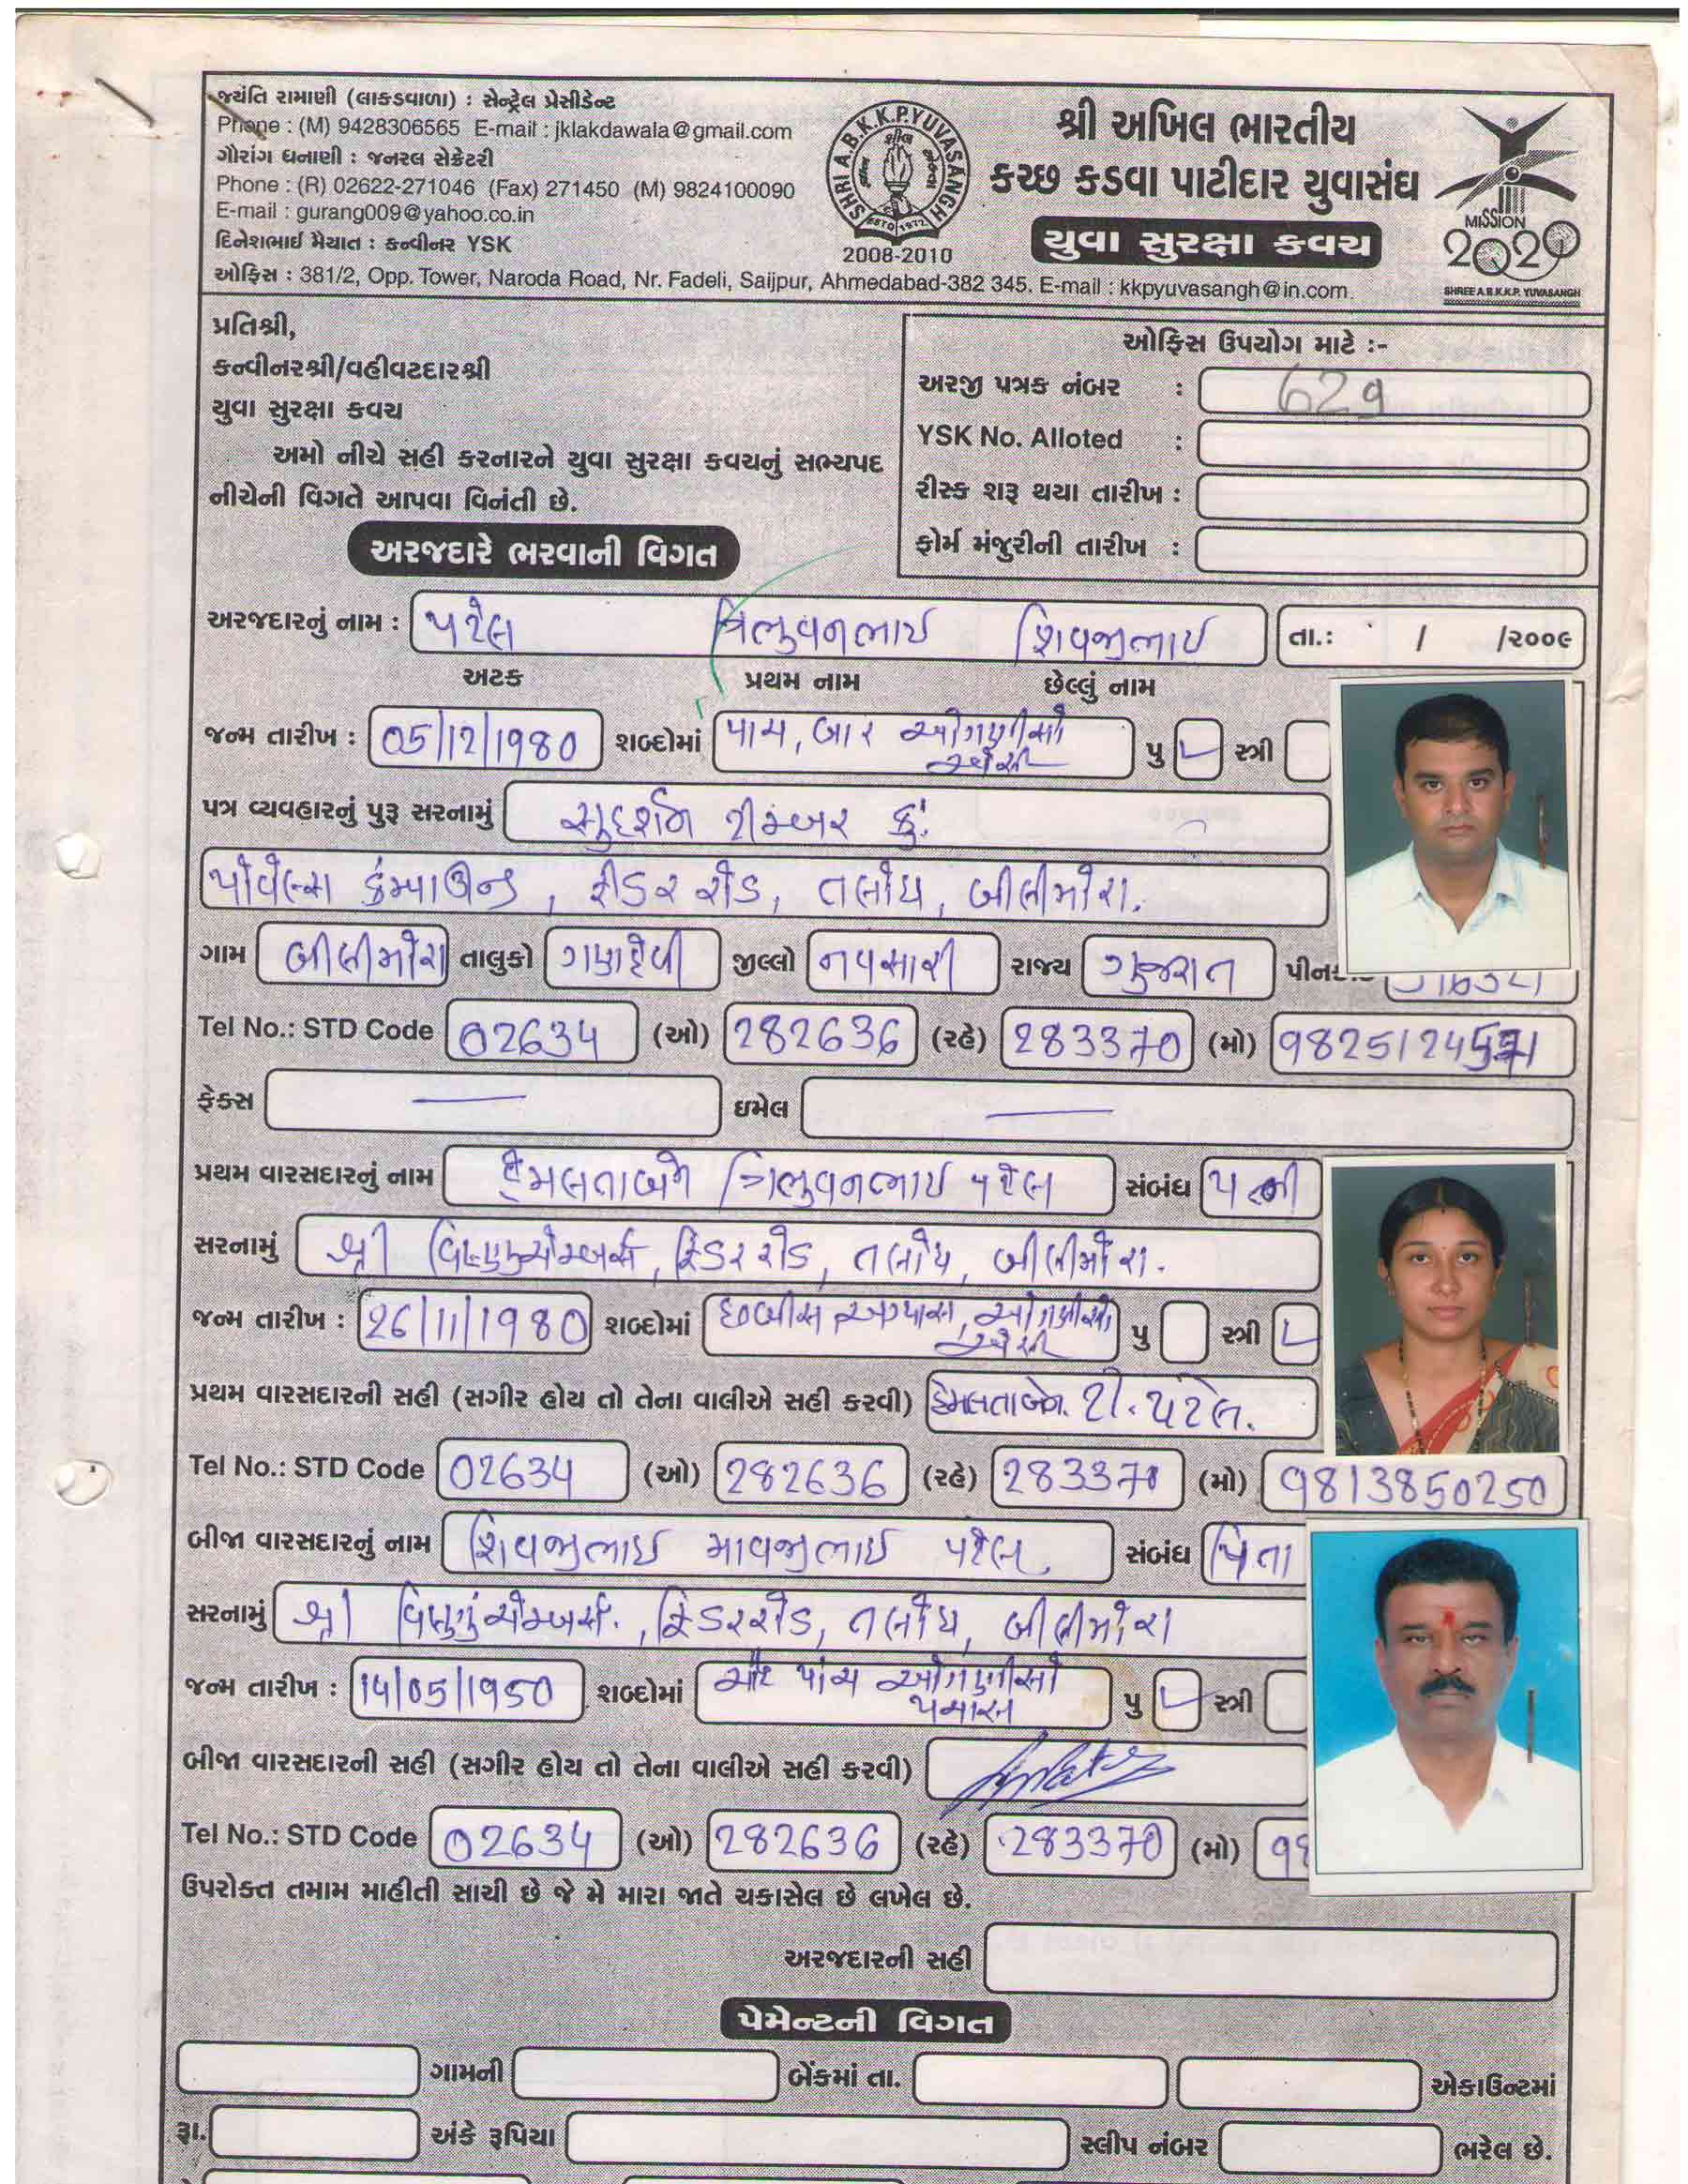 જયંતિ રામાણી (લાકડવાળા) : સેન્ટ્રેલ પ્રેસીડેન્ટ
Phone : (M) 9428306565 E-mail : jklakdawala@gmail.com
ગૌરાંગ ધનાણી : જનરલ સેક્રેટરી
Phone : (R) 02622-271046 (Fax) 271450 (M) 9824100090
E-mail : gurang009@yahoo.co.in
દિનેશભાઈ મૈયાત : કન્વીનર YSK
ઓફિસ : 381/2, Opp. Tower, Naroda Road, Nr. Fadeli, Saijpur, Ahmedabad-382 345. E-mail : kkpyuvasangh@in.com.
SHRI A.B.K.K.P. YUVASANGH
ESTD 1972
2008-2010
શ્રી અખિલ ભારતીય
કચ્છ કડવા પાટીદાર યુવાસંઘ
યુવા સુરક્ષા કવચ
MISSION
2020
SHREE A.B.K.K.P. YUVASANGH
પ્રતિશ્રી,
કન્વીનરશ્રી/વહીવટદારશ્રી
યુવા સુરક્ષા કવચ
અમો નીચે સહી કરનારને યુવા સુરક્ષા કવચનું સભ્યપદ
નીચેની વિગતે આપવા વિનંતી છે.
ઓફિસ ઉપયોગ માટે :-
અરજી પત્રક નંબર : 629
YSK No. Alloted :
રીસ્ક શરૂ થયા તારીખ :
ફોર્મ મંજુરીની તારીખ :
અરજદારે ભરવાની વિગત
અરજદારનું નામ : પટેલ ત્રિભુવનભાઈ શિવજીભાઈ તા.: / /૨૦૦૯
અટક પ્રથમ નામ છેલ્લું નામ
જન્મ તારીખ : 05/12/1980 શબ્દોમાં પાચ, બાર ઓગણીસો પુ સ્ત્રી
પત્ર વ્યવહારનું પુરૂ સરનામું સુદર્શન ટીમ્બર કું.
કંમ્પાઉન્ડ, રીડર રોડ, તલોધ, બીલીમોરા.
ગામ બીલીમોરા તાલુકો ગણદેવી જીલ્લો નવસારી રાજ્ય ગુજરાત
Tel No.: STD Code 02634 (ઓ) 282636 (રહે) 283370 (મો)
ફેક્સ — ઇમેલ —
પ્રથમ વારસદારનું નામ હેમલતાબેન ત્રિભુવનભાઈ પટેલ સંબંધ પત્ની
સરનામું શ્રી રિડર રોડ, તલોધ, બીલીમોરા.
જન્મ તારીખ : 26/11/1980 શબ્દોમાં છવ્વીસ, ઓગણીસો પુ સ્ત્રી
પ્રથમ વારસદારની સહી (સગીર હોય તો તેના વાલીએ સહી કરવી) હેમલતાબેન. ટી. પટેલ.
Tel No.: STD Code 02634 (ઓ) 282636 (રહે) 283370 (મો) 9813850250
બીજા વારસદારનું નામ શિવજીભાઈ માવજીભાઈ પટેલ સંબંધ પિતા
સરનામું શ્રી રિડર રોડ, તલોધ, બીલીમોરા
જન્મ તારીખ : 14/05/1950 શબ્દોમાં પાંચ ઓગણીસો પચાસ પુ સ્ત્રી
બીજા વારસદારની સહી (સગીર હોય તો તેના વાલીએ સહી કરવી)
Tel No.: STD Code 02634 (ઓ) 282636 (રહે) 283370 (મો)
ઉપરોક્ત તમામ માહીતી સાચી છે જે મે મારા જાતે ચકાસેલ છે લખેલ છે.
અરજદારની સહી
પેમેન્ટની વિગત
ગામની બેંકમાં તા. એકાઉન્ટમાં
રૂા. અંકે રૂપિયા સ્લીપ નંબર ભરેલ છે.